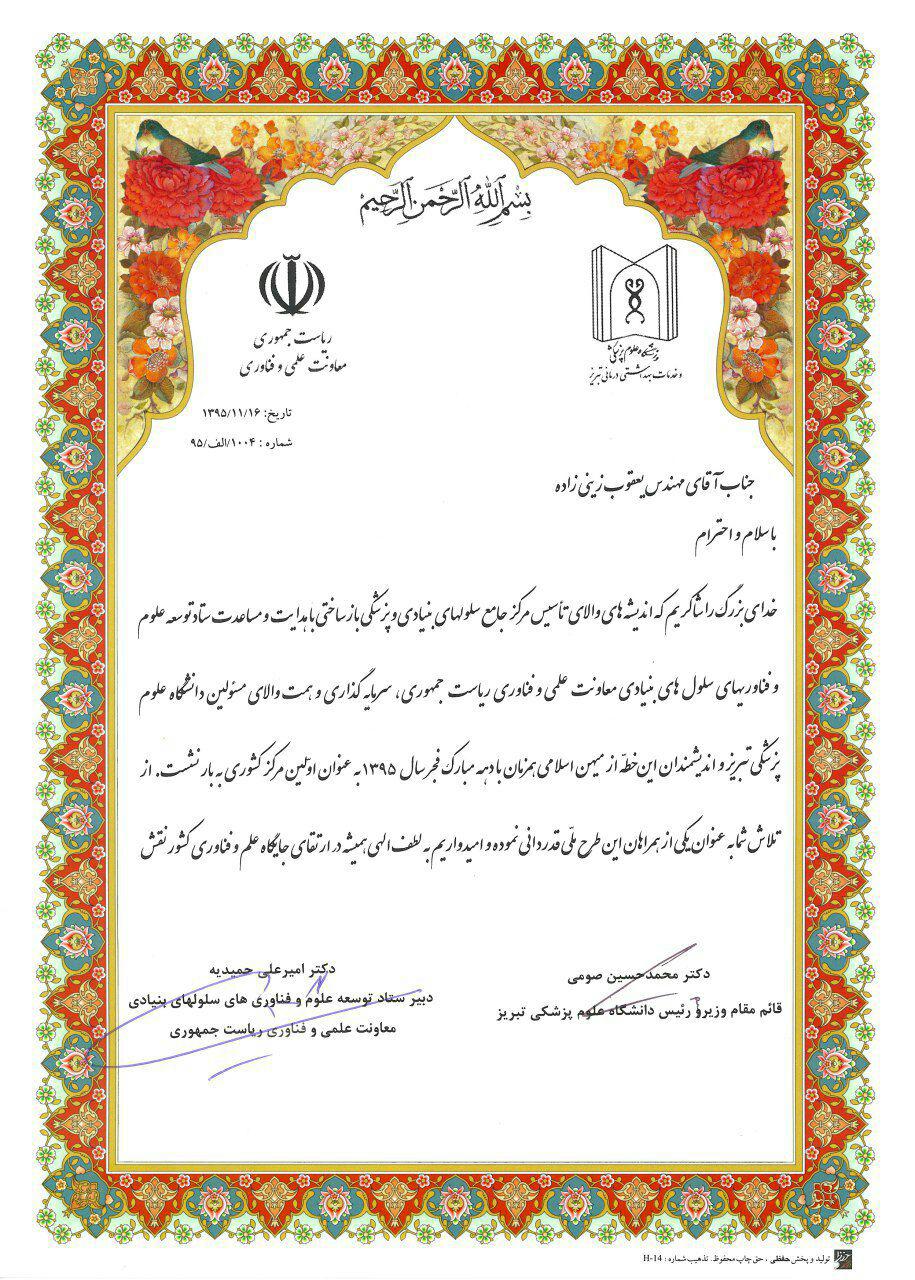 بسم الله الرحمن الرحیم
ریاست جمهوری
معاونت علمی و فناوری
دانشگاه علوم پزشکی
و خدمات بهداشتی درمانی تبریز
تاریخ: ۱۳۹۵/۱۱/۱۶
شماره : ۱۰۰۴/الف/۹۵
جناب آقای مهندس یعقوب زینی زاده
با سلام و احترام
خدای بزرگ را شاکریم که اندیشه های والای تأسیس مرکز جامع سلولهای بنیادی و پزشکی بازساختی با هدایت و مساعدت ستاد توسعه علوم
و فناوریهای سلول های بنیادی معاونت علمی و فناوری ریاست جمهوری، سرمایه گذاری و همت والای مسئولین دانشگاه علوم
پزشکی تبریز و اندیشمندان این خطّه از میهن اسلامی همزمان با دهه مبارک فجر سال ۱۳۹۵ به عنوان اولین مرکز کشوری به بار نشست. از
تلاش شما به عنوان یکی از همراهان این طرح ملّی قدردانی نموده و امیدواریم به لطف الهی همیشه در ارتقای جایگاه علم و فناوری کشور نقش
دکتر محمدحسین صومی
قائم مقام وزیر و رئیس دانشگاه علوم پزشکی تبریز
دکتر امیرعلی حمیدیه
دبیر ستاد توسعه علوم و فناوری های سلولهای بنیادی
معاونت علمی و فناوری ریاست جمهوری
تولید و پخش حفظی ، حق چاپ محفوظ. تذهیب شماره : H-14